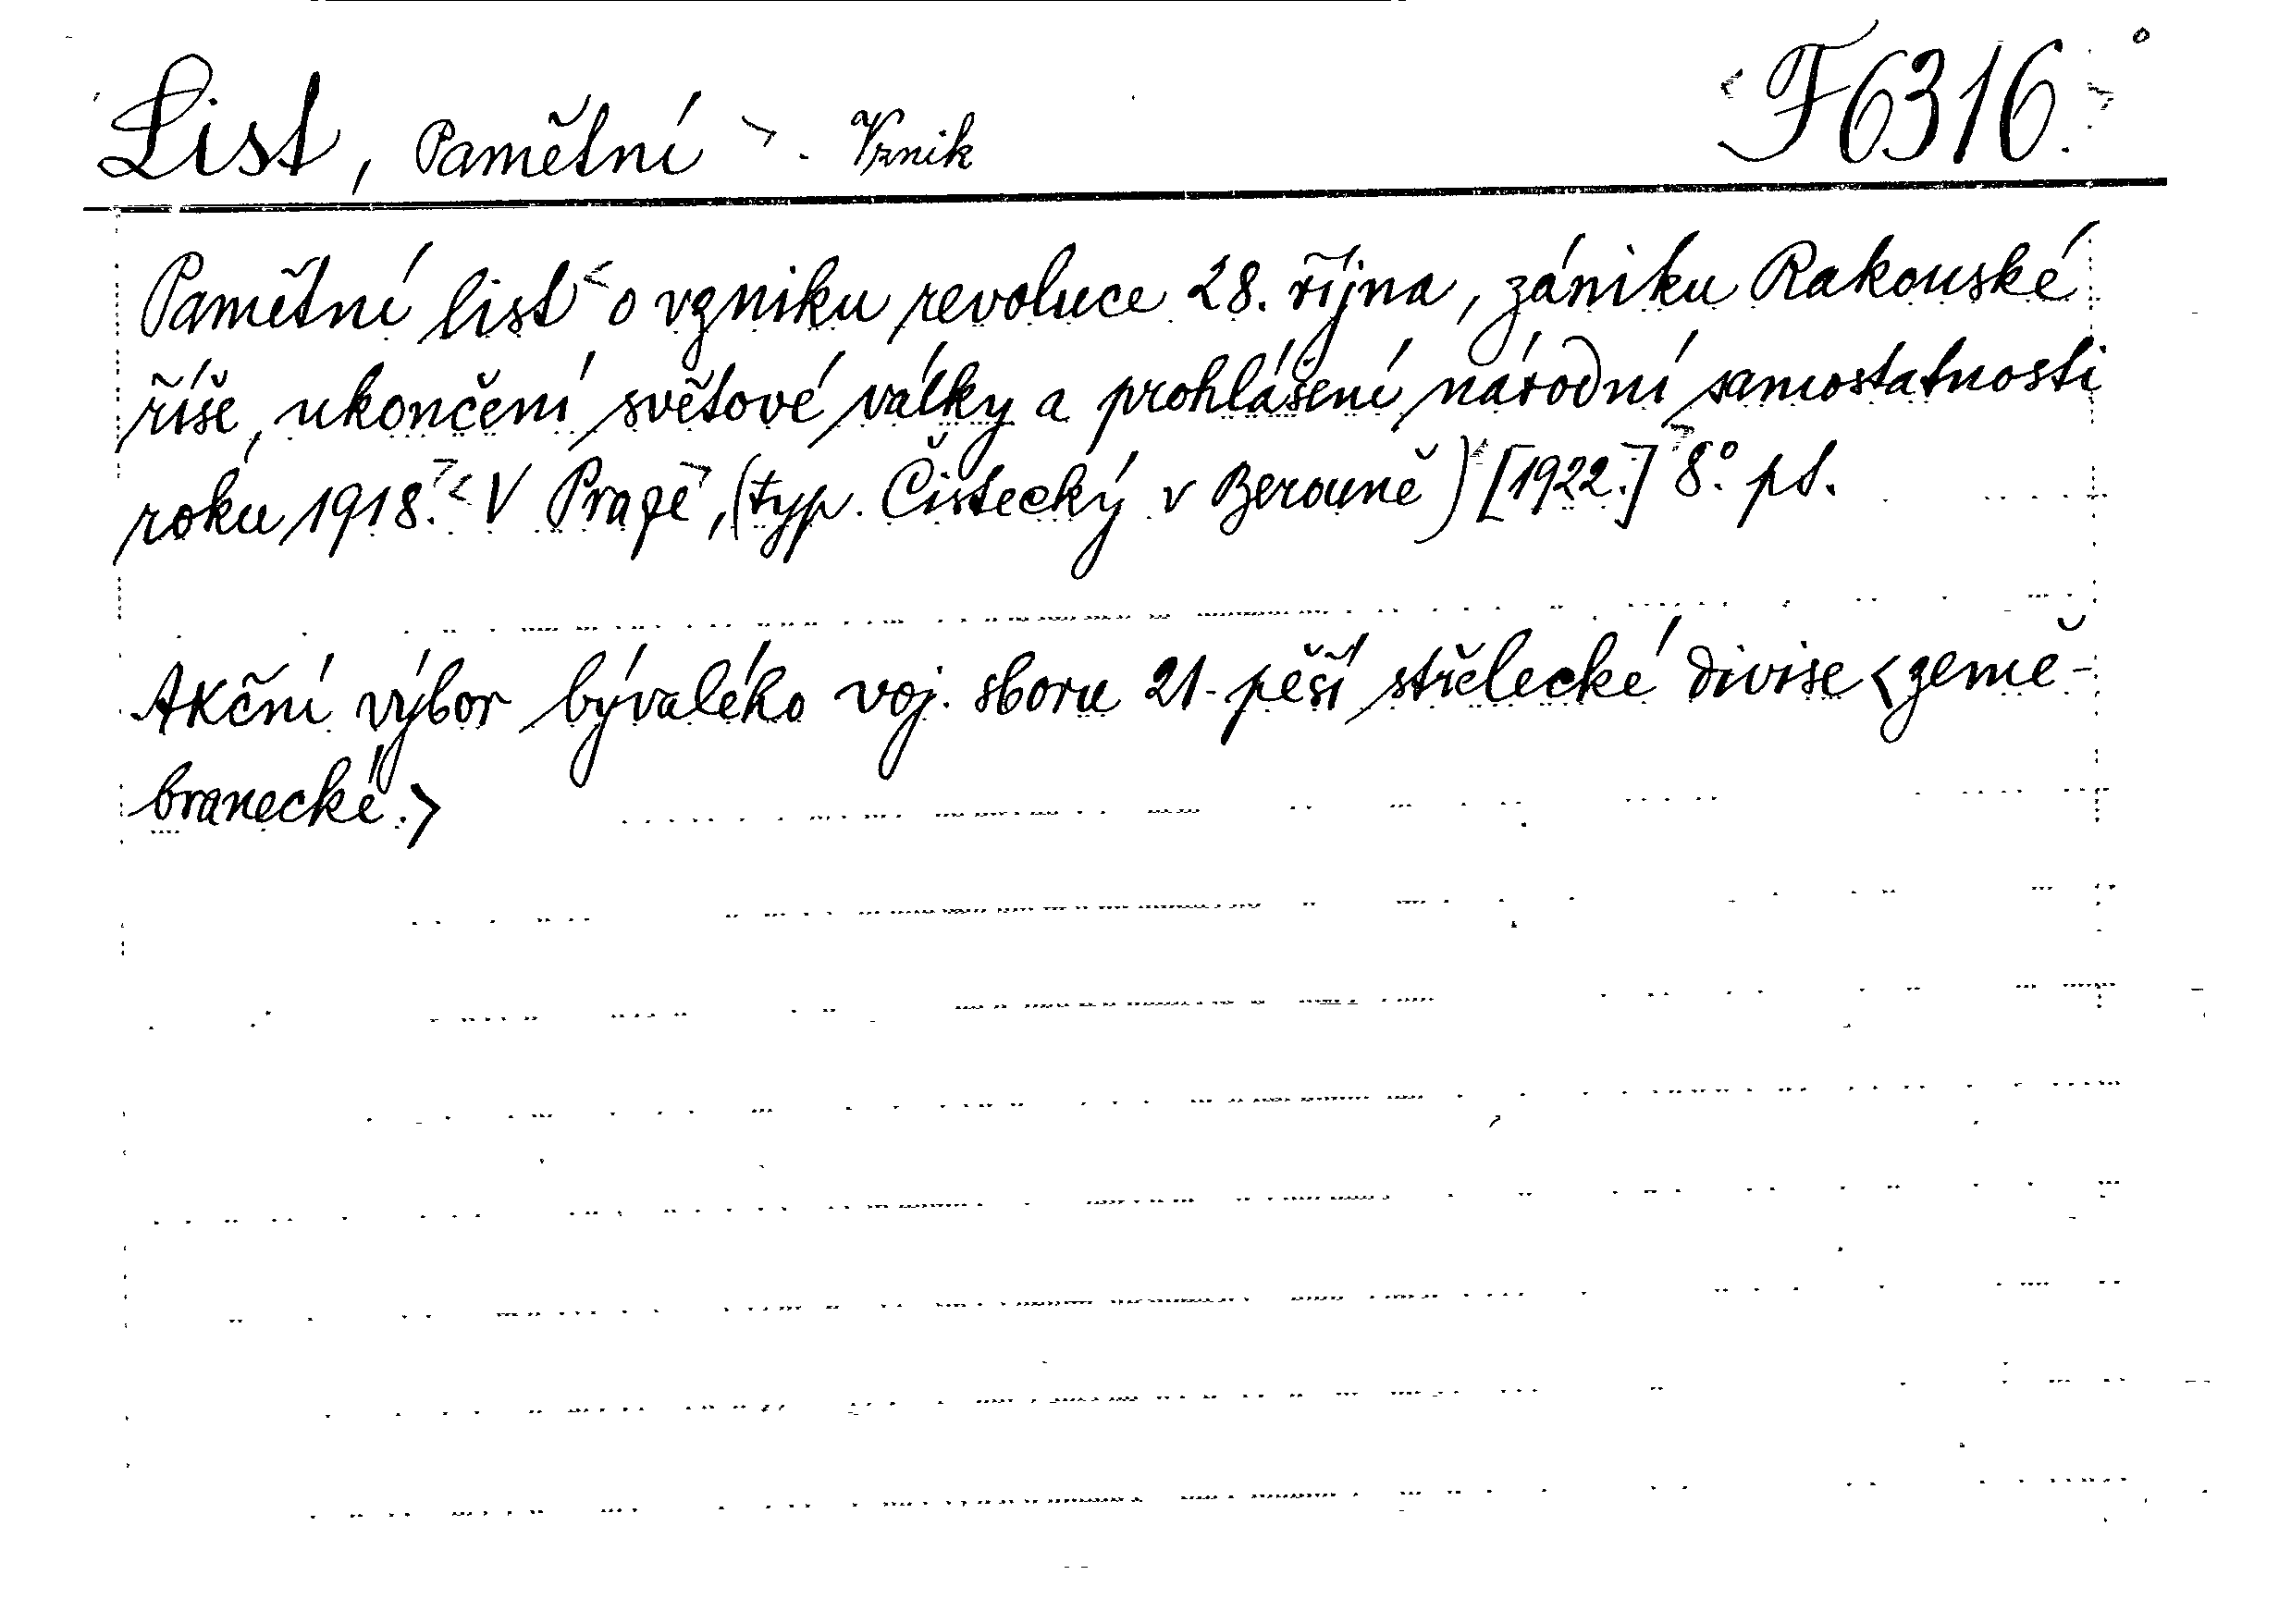 List, Pamětní . Vznik
F6316.
Pamětní list o vzniku revoluce 28. října, zániku Rakouské
říše, ukončení světové války a prohlášení národní samostatnosti
roku 1918. V Praze, (typ. Čistecký v Berouně) [1922.] 8.° pt.
Akční výbor bývalého voj. sboru 21. pěší střelecké divise <země-
branecké.>